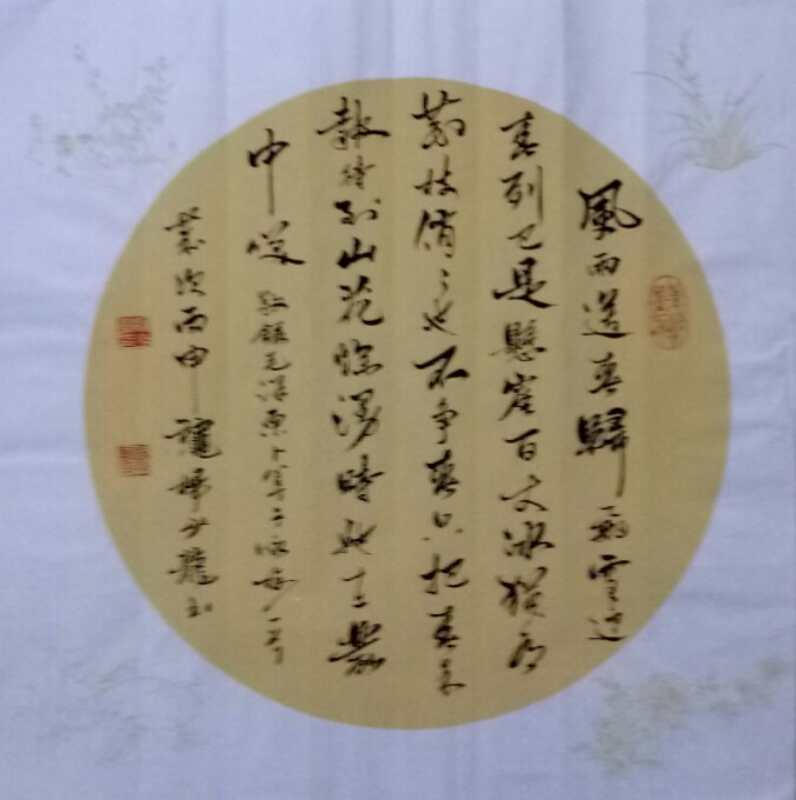 風雨送春歸飛雪迎
春到已是懸崖百丈冰猶有
花枝俏〻也不争春只把春來
報待到山花爛漫時她在叢
中笑 敬録毛澤東卜算子詠梅一首
歲次丙申